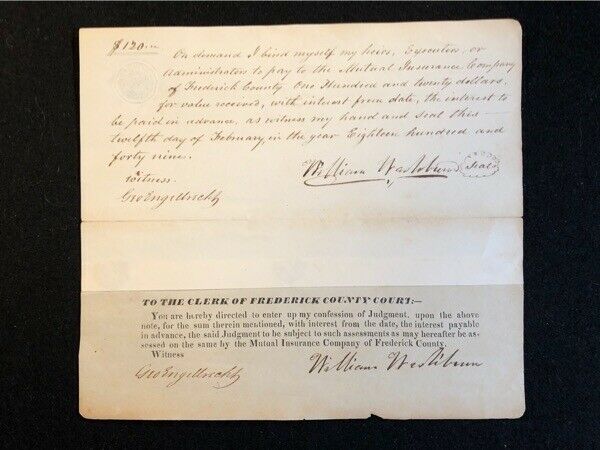 $120.
On demand I bind myself my heirs, Executors, or
Administrators to pay to the Mutual Insurance Company
of Frederick County One Hundred and twenty dollars.
for value received, with interest from date, the interest to
be paid in advance, as witness my hand and seal this
twelfth day of February, in the year Eighteen hundred and
forty nine.
William Washburn Seal
Witness
Geo Engelbrecht
TO THE CLERK OF FREDERICK COUNTY COURT:—
You are hereby directed to enter up my confession of Judgment, upon the above
note, for the sum therein mentioned, with interest from the date, the interest payable
in advance, the said Judgment to be subject to such assessments as may hereafter be as-
sessed on the same by the Mutual Insurance Company of Frederick County.
Witness
Geo Engelbrecht William Washburn